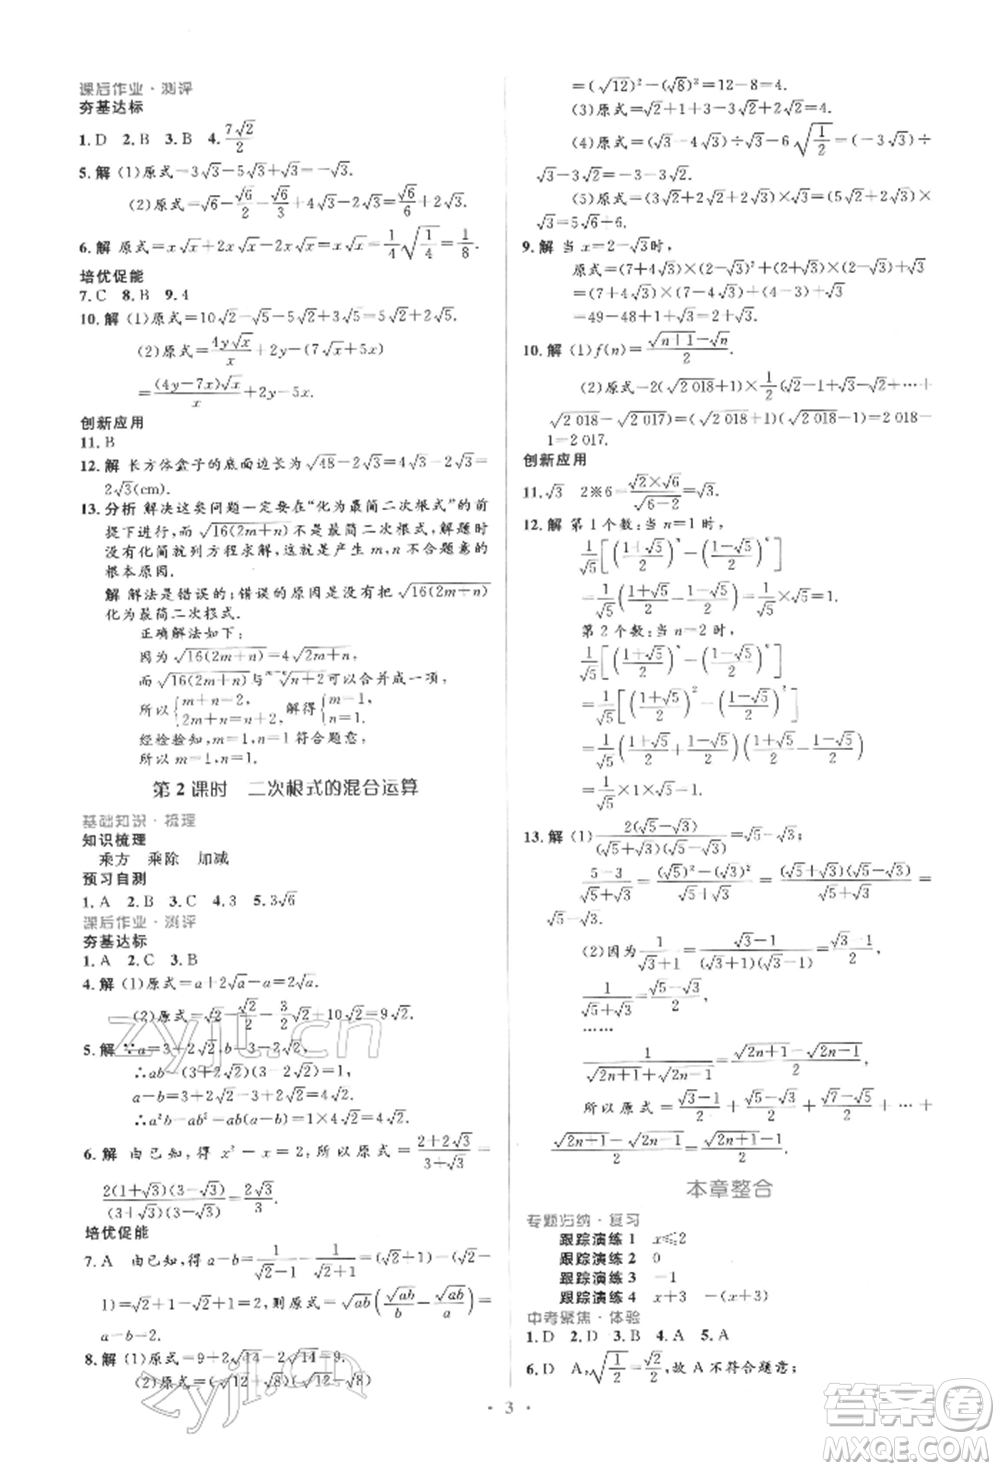 课后作业·测评
夯基达标
1. D 2. B 3. B 4. 7√2/2
5. 解 (1)原式=3√3-5√3+√3=-√3.
(2)原式=√6-√6/2-√6/3+4√6=25√6/6.
6. 解 原式=x√x+2x√x=3x√x=
培优促能
7. C 8. B 9. 4
10. 解 (1)原式=10√2-5√3-5√2+√3=5√2-4√3.
(2)原式=4y√x/x-(7√x+5√x)
=(4y-7x)√x/x
创新应用
11. B
12. 解 长方体盒子的底面边长为√48-2√3=4√3-2√3=
2√3(cm).
13. 分析 解决这类问题一定要在“化为最简二次根式”的前
提下进行,而√16(2m+n)不是最简二次根式,解题时
没有化简就列方程求解,这就是产生m,n不合题意的
根本原因.
解 解法是错误的;错误的原因是没有把√16(2m+n)
化为最简二次根式.
正确解法如下:
因为√16(2m+n)=4√2m+n,
而√16(2m+n)与 √n+2可以合并成一项,
所以{m+n=2, 2m+n=n+2, 解得{m=1, n=1.
经检验知,m=1,n=1符合题意.
第2课时 二次根式的混合运算
基础知识·梳理
知识梳理
乘方 乘除 加减
预习自测
1. A 2. B 3. C 4. 3 5. 3√6
课后作业·测评
夯基达标
1. A 2. C 3. B
4. 解 (1)原式=a+2√a-a=2√a.
(2)原式=(√2-√2/2-3/2√2+10√2)=9√2.
5. 解 ∵a=3+2√2,b=3-2√2,
∴ab=(3+2√2)(3-2√2)=1,
a-b=4√2.
∴a²b-ab²=ab(a-b)=1×4√2=4√2.
6. 解 由已知,得x²-x=2,所以原式=(2+2√3)/(3+√3)=
2(1+√3)(3-√3)/(3+√3)(3-√3)=2√3/3.
培优促能
7. A 由已知,得a-b=1/(√2-1)-1/(√2+1)=
(√2+1)-(√2-1)=2,则原式=√ab(√ab/b-√ab/a)=
a-b=2.
8. 解 (1)原式=9+2√14-2√14=9.
(2)原式=(√12+√8)(√12-√8)
=(√12)²-(√8)²=12-8=4.
(3)原式=√2+1+3-3√2+√2=4-√2.
(4)原式=(√3-4√3)÷√3-6√(1/2)×√2=(-3√3)÷
√3-3√2×√2=-3-6=-9.
=5√6+6.
9. 解 当x=2-√3时,
原式=(7+4√3)(2-√3)²+(2+√3)(2-√3)+√3
=(7+4√3)(7-4√3)+(4-3)+√3
=49-48+1+√3=2+√3.
10. 解 (1)f(n)=(√n+1-√n)/2.
(2)原式=2(√2 018+1)×1/2(√2-1+√3-√2+…+
√2 018-√2 017)=(√2 018+1)(√2 018-1)=2 018-
1=2 017.
创新应用
11. √3 2※6=√2×√6/√6-2=√3.
12. 解 第1个数:当n=1时,
1/√5[((1+√5)/2)ⁿ-((1-√5)/2)ⁿ]
=1/√5((1+√5)/2-(1-√5)/2)=1/√5×√5=1.
第2个数:当n=2时,
1/√5[((1+√5)/2)ⁿ-((1-√5)/2)ⁿ]
=1/√5[((1+√5)/2)²-((1-√5)/2)²]
=1/√5((1+√5)/2+(1-√5)/2)((1+√5)/2-(1-√5)/2)
=1/√5×1×√5=1.
13. 解 (1)2/(√5+√3)=2(√5-√3)/(√5+√3)(√5-√3)=√5-√3.
2/(√5+√3)=(5-3)/(√5+√3)=((√5)²-(√3)²)/(√5+√3)=(√5+√3)(√5-√3)/(√5+√3)=
√5-√3.
(2)因为1/(√3+1)=(√3-1)/(√3+1)(√3-1)=(√3-1)/2,
1/(√5+√3)=(√5-√3)/2,
……
1/(√2n+1+√2n-1)=(√2n+1-√2n-1)/2.
所以原式=(√3-1)/2+(√5-√3)/2+(√7-√5)/2+…+
(√2n+1-√2n-1)/2=(√2n+1-1)/2.
本章整合
专题归纳·复习
跟踪演练1 x≤2
跟踪演练2 0
跟踪演练3 -1
跟踪演练4 x+3 -(x+3)
中考聚焦·体验
1. D 2. D 3. B 4. A 5. A
6. D A,√(1/2)=√2/2,故A不符合题意;
· 3 ·
zyjl.cn
zyjl.cn
答案圈
MXQE.COM